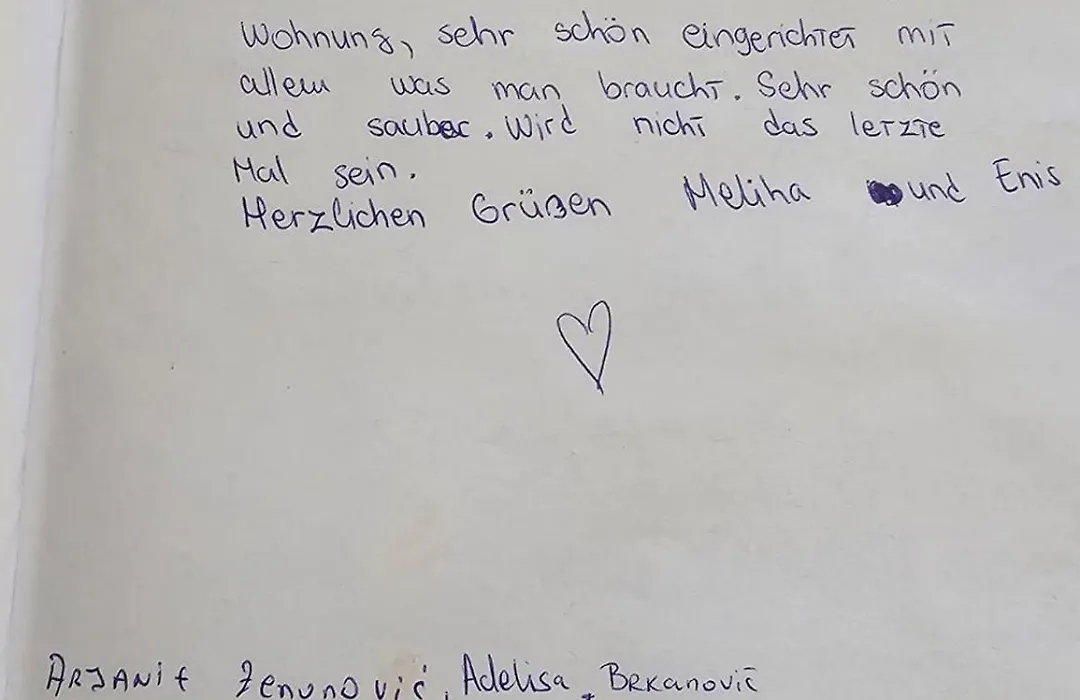 Wohnung, sehr schön eingerichtet mit
allem was man braucht. Sehr schön
und sauber. Wird nicht das letzte
Mal sein.
Herzlichen Grüßen Meliha und Enis
Arjanit Zenunović, Adelisa Brkanović